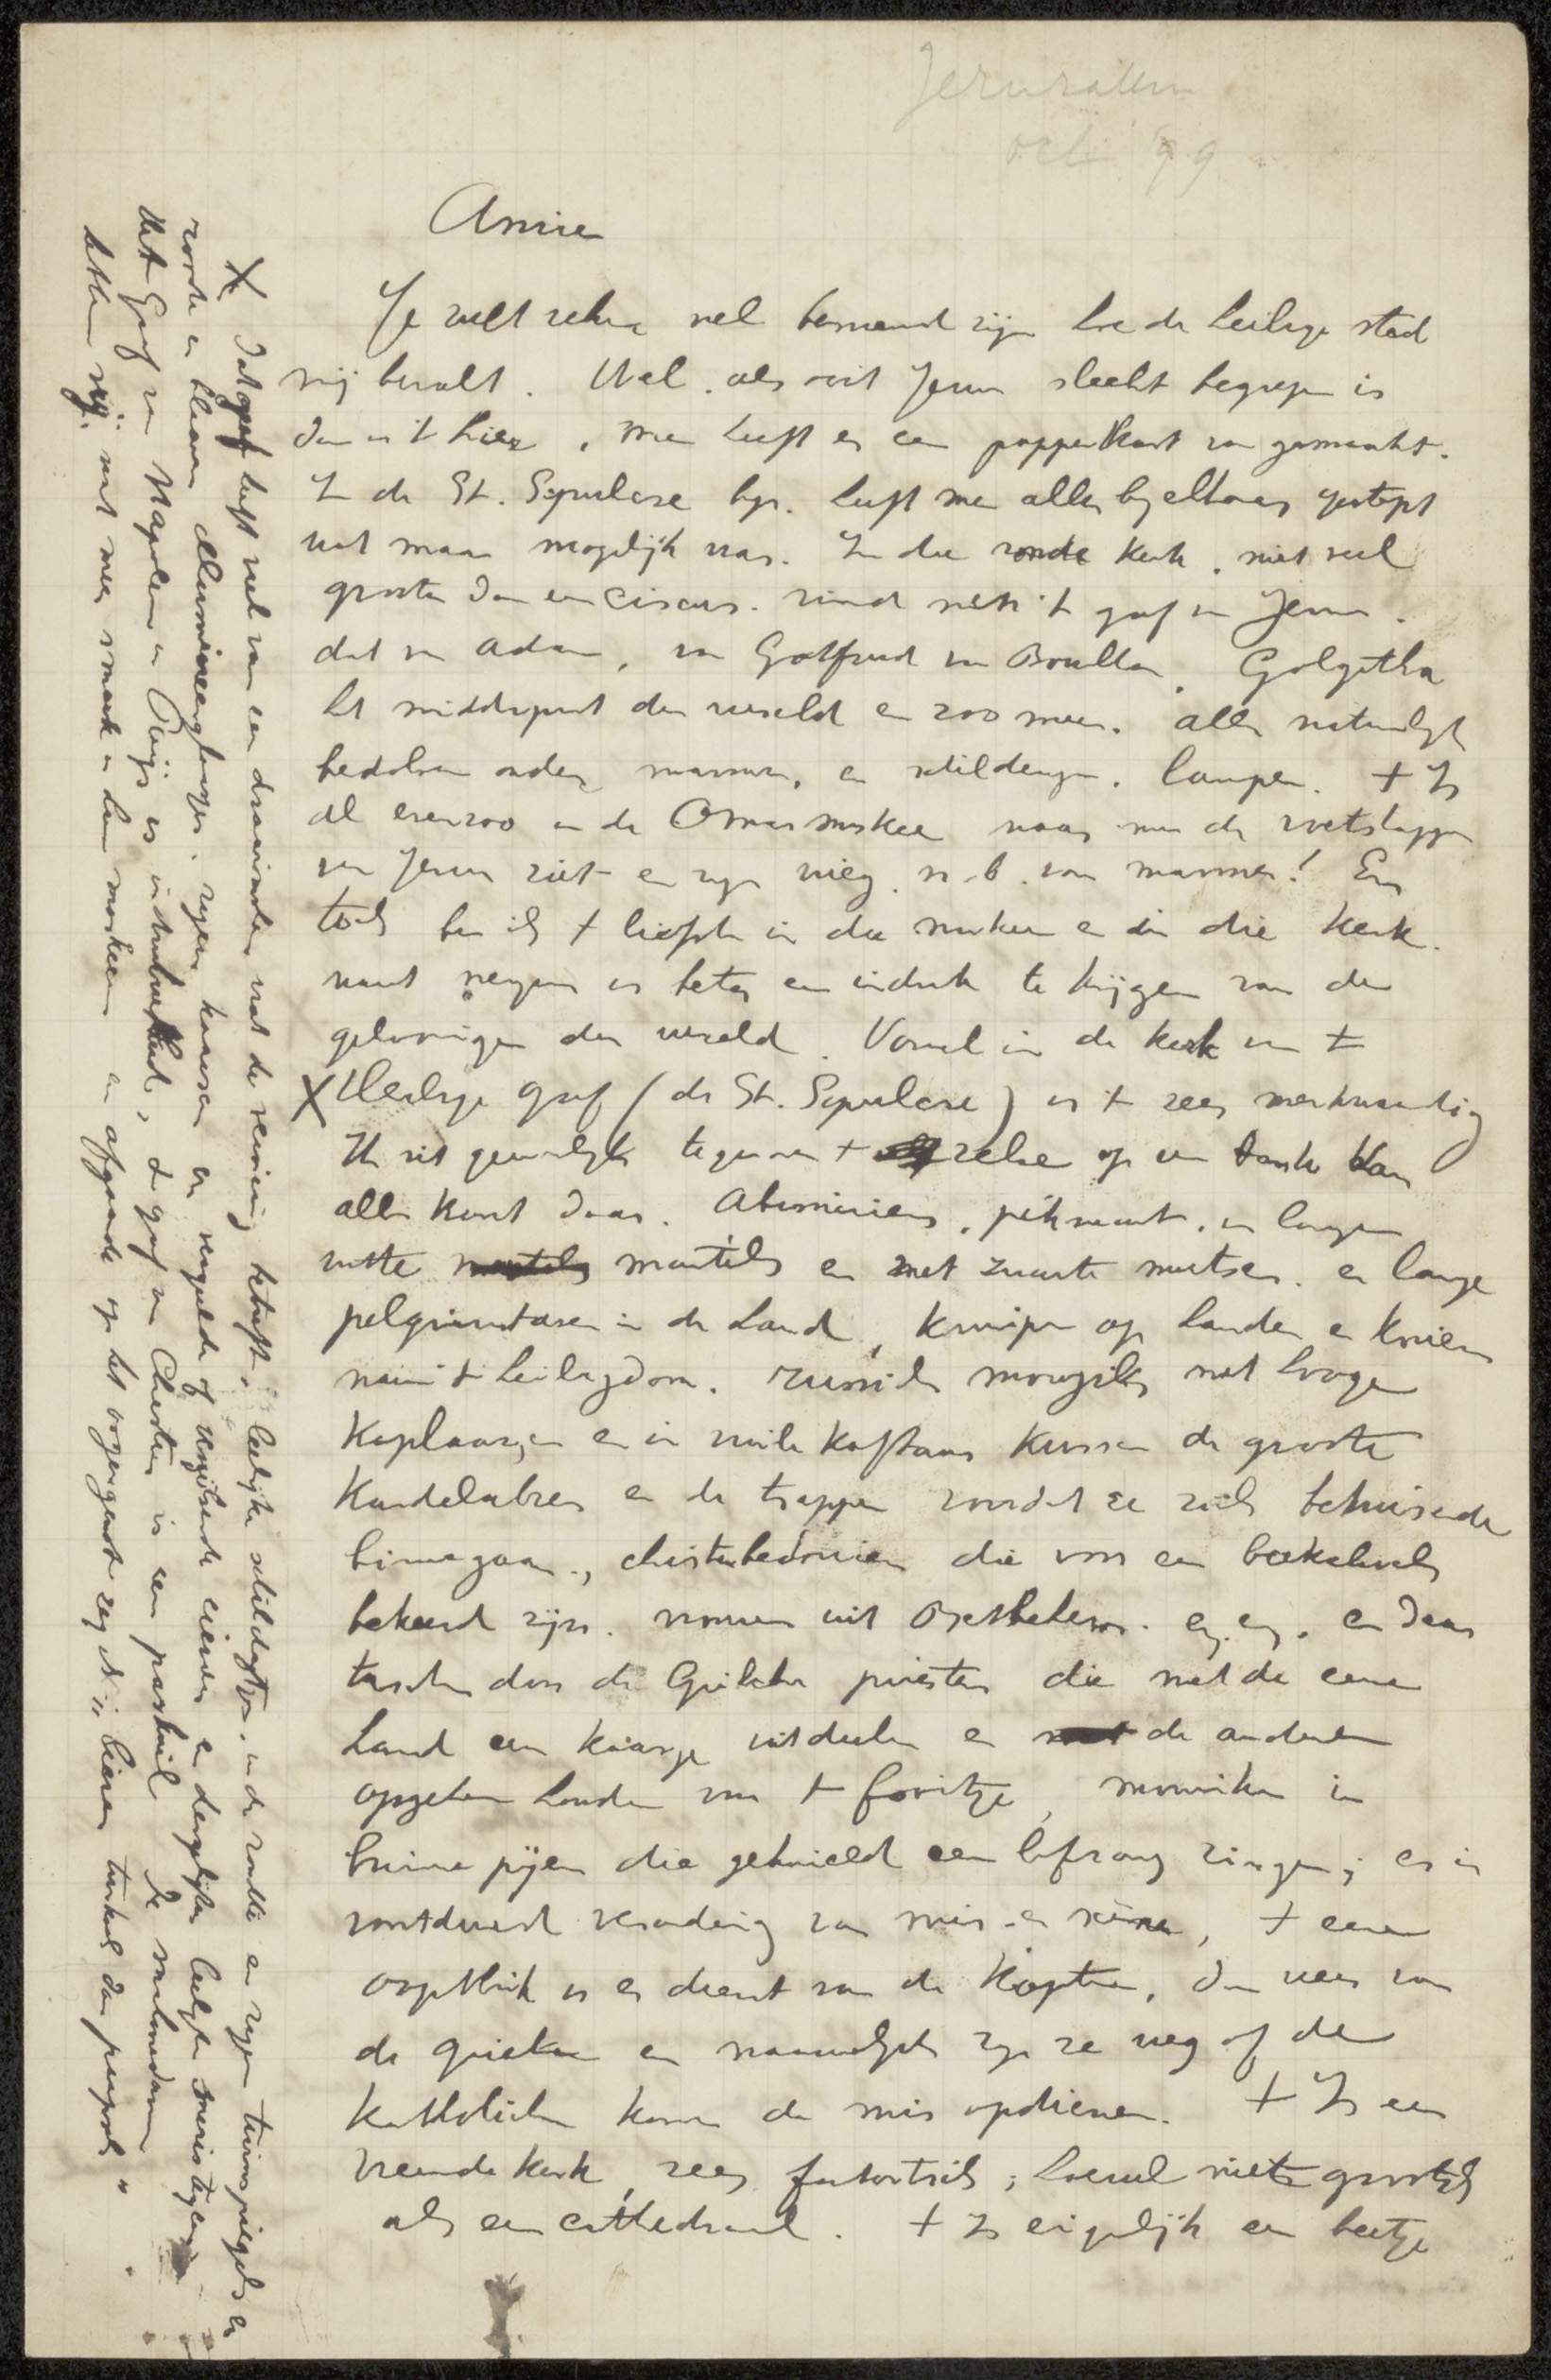 Jeruzalem
oct 99
Annie
Je zult zeker wel benieuwd zijn hoe de heilige stad
mij bevalt. Wel, als ooit Jezus slecht begrepen is
dan is 't hier, men heeft er een poppenkast van gemaakt.
In de St. Sepulcre bijv. heeft men alles bij elkaar gestopt
wat maar mogelijk was. In die ronde kerk, niet veel
grooter dan een circus. vind men 't graf van Jezus.
dat van Adam, van Godfried van Bouillon, Golgotha
het middelpunt der wereld en zoo meer. alles natuurlijk
bedolven onder marmer, en schilderijen, lampen. 't Is
al evenzoo in de Omar moskee waar men de voetstappen
van Jezus ziet en zijn wieg. n.b. van marmer! En
toch ben ik 't liefst in die moskee en in die kerk.
want nergens is beter een indruk te krijgen van de
geloovigen der wereld. Vooral in de kerk van 't
X Heilige graf (de St. Sepulcre) is 't zeer merkwaardig
Ik zit gewoonlijk tegenover 't zelve op een bank
alles komt daar. Abessiniers, pikzwart, in lange
witte mantels en met zwarte mutsen. en lange
pelgrimstaven in de hand, kruipen op handen en knieen
naar 't heiligdom. russische moujiks met hooge
kaplaarzen en in vuile kaftans kussen de groote
kandelabres en de trappen voordat ze zich bekruisende
binnengaan, christenbedouinen die voor een
bekeerd zijn. vrouwen uit Bethlehem. en, en, en daar
tusschen door de Grieksche priesters die met de eene
hand een kaarsje uitdeelen en de anderen
opgeheven houden voor 't fooitje, monniken in
bruine pijen die geknield een lofzang zingen; er is
voortdurend verandering van mis en scène, 't eene
oogenblik is er dienst van de Kopten, dan weer van
de grieken en nauwelijks zijn ze weg of de
katholieken komen de mis opdienen. 't Is een
vreemde kerk, zeer fantastisch; hoewel niets grootsch
als een cathedraal. 't Is eigenlijk een beetje
X Dat graf heeft veel van een draaimolen wat de versiering betreft, leelijke schilderijtjes, in de rondte en zijen
ronde en blauwe illumineerglaasjes, rijen kaarsen en vergulde of verzilverde eieren en dergelijke leelijke
Het Graf van Napoleon in Parijs is indrukwekkender, de graf van Christus is een paskwil. De mahomedanen
hebben wij wat meer smaak in hun moskeeen en afgaande op het oogenpunt zeg ik: "liever turksch dan paapsch"